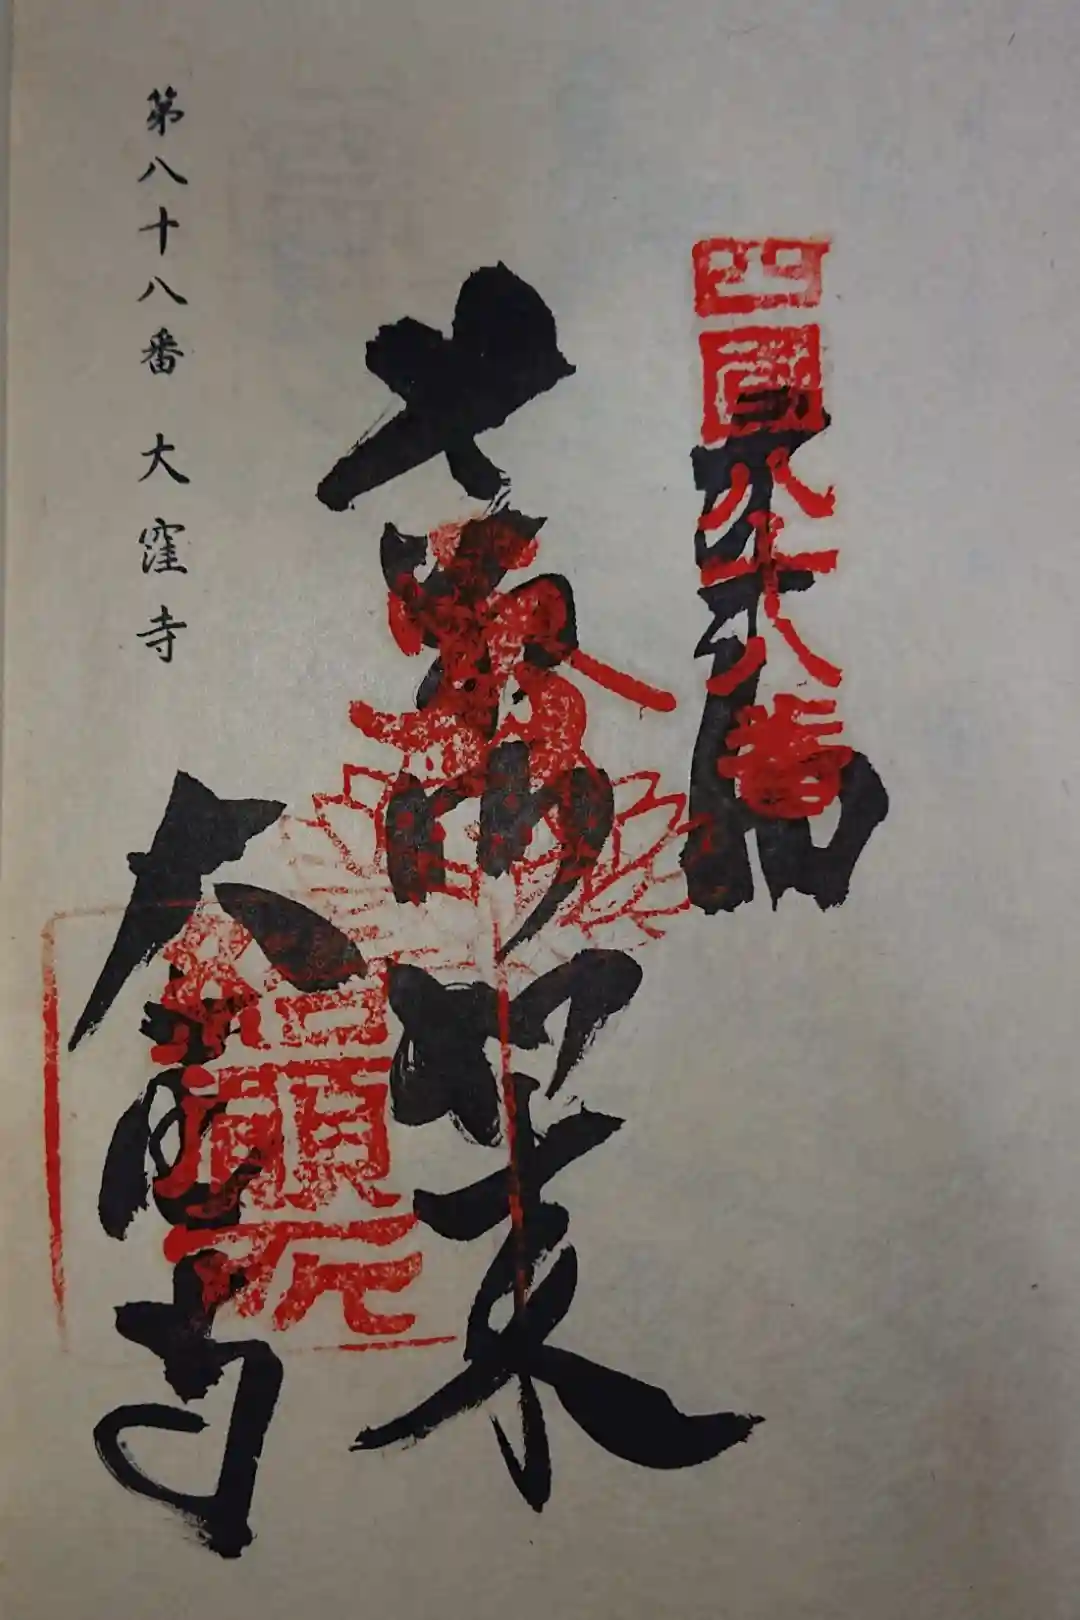 四國八十八番
奉納
薬師如来
大窪寺
結願所
第八十八番 大窪寺